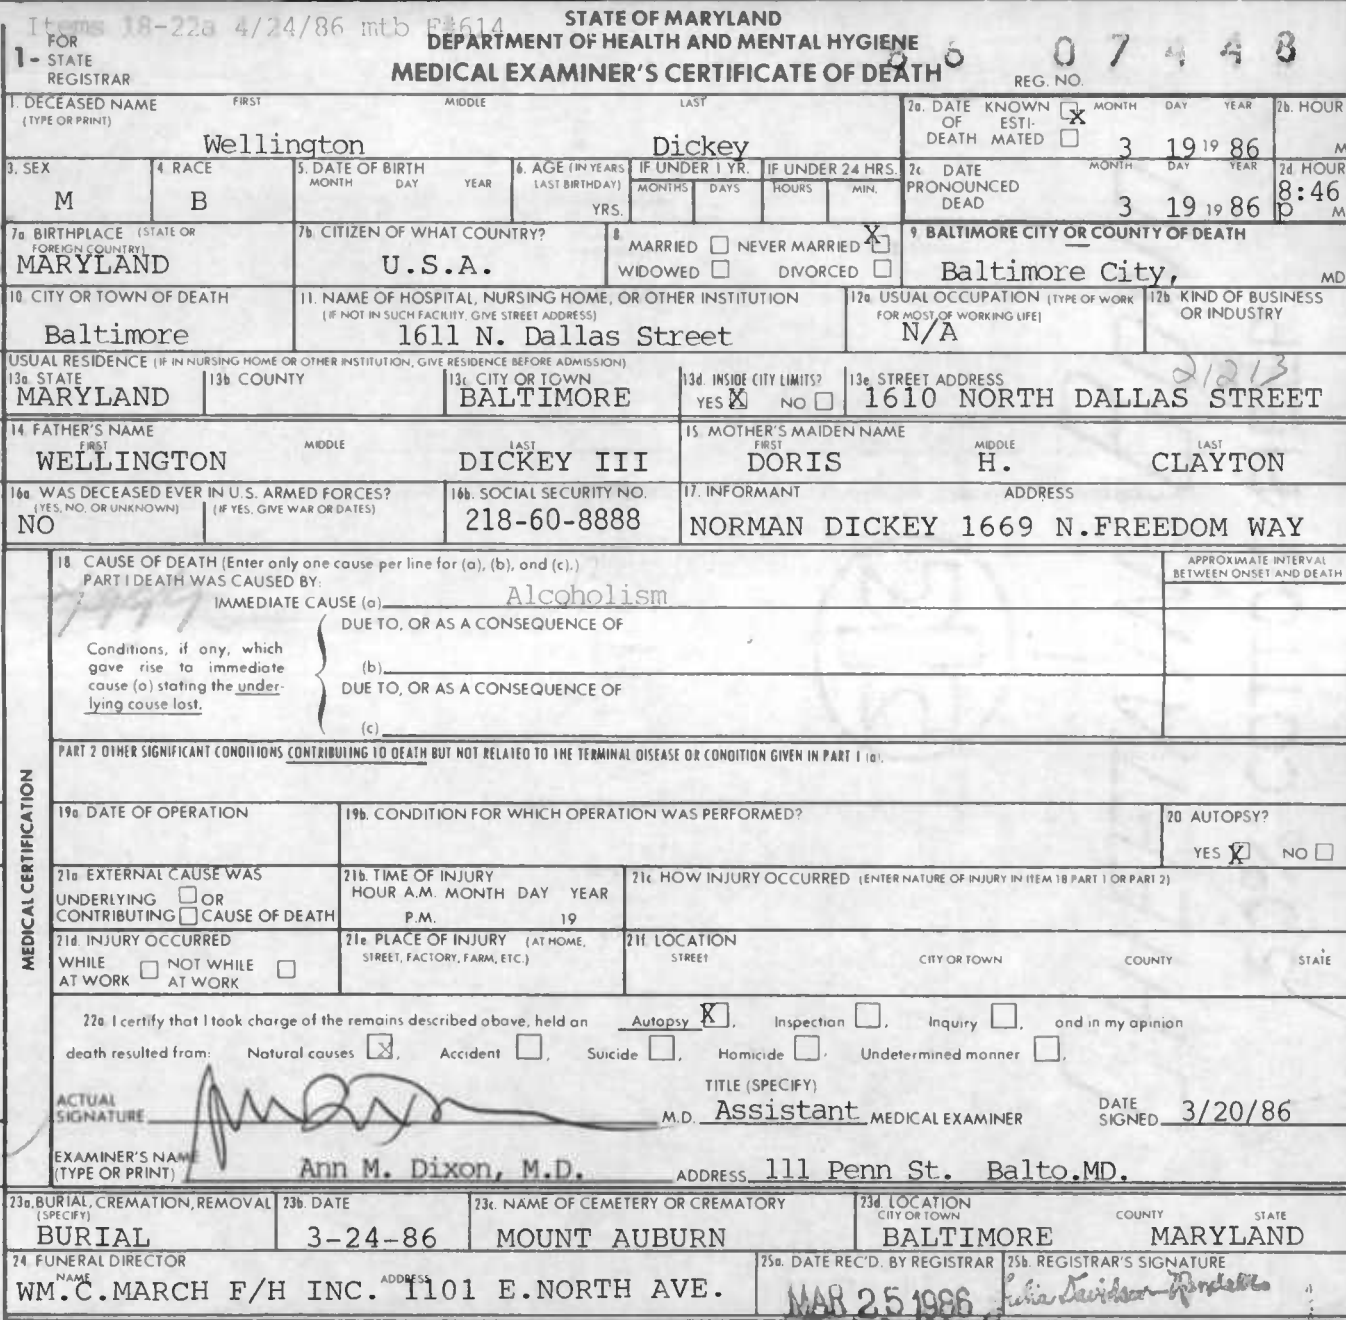 Items 18-22a 4/24/86 mtb F#614
STATE OF MARYLAND
DEPARTMENT OF HEALTH AND MENTAL HYGIENE
MEDICAL EXAMINER'S CERTIFICATE OF DEATH
1- FOR STATE REGISTRAR
86 07448
REG. NO.
1. DECEASED NAME (TYPE OR PRINT) FIRST MIDDLE LAST
Wellington Dickey
2a. DATE OF DEATH KNOWN X ESTIMATED MONTH DAY YEAR
3 19 19 86
2b. HOUR M
3. SEX M
4. RACE B
5. DATE OF BIRTH MONTH DAY YEAR
6. AGE (IN YEARS LAST BIRTHDAY) YRS.
IF UNDER 1 YR. MONTHS DAYS
IF UNDER 24 HRS. HOURS MIN.
2c DATE PRONOUNCED DEAD MONTH DAY YEAR
3 19 19 86
2d HOUR 8:46 p M
7a BIRTHPLACE (STATE OR FOREIGN COUNTRY)
MARYLAND
7b CITIZEN OF WHAT COUNTRY?
U.S.A.
8 MARRIED NEVER MARRIED X
WIDOWED DIVORCED
9. BALTIMORE CITY OR COUNTY OF DEATH
Baltimore City, MD
10. CITY OR TOWN OF DEATH
Baltimore
11. NAME OF HOSPITAL, NURSING HOME, OR OTHER INSTITUTION
(IF NOT IN SUCH FACILITY, GIVE STREET ADDRESS)
1611 N. Dallas Street
12a. USUAL OCCUPATION (TYPE OF WORK FOR MOST OF WORKING LIFE)
N/A
12b KIND OF BUSINESS OR INDUSTRY
USUAL RESIDENCE (IF IN NURSING HOME OR OTHER INSTITUTION, GIVE RESIDENCE BEFORE ADMISSION)
13a. STATE
MARYLAND
13b COUNTY
13c CITY OR TOWN
BALTIMORE
13d. INSIDE CITY LIMITS?
YES X NO
13e STREET ADDRESS 21213
1610 NORTH DALLAS STREET
14 FATHER'S NAME FIRST MIDDLE LAST
WELLINGTON DICKEY III
15. MOTHER'S MAIDEN NAME FIRST MIDDLE LAST
DORIS H. CLAYTON
16a WAS DECEASED EVER IN U.S. ARMED FORCES?
(YES, NO, OR UNKNOWN) (IF YES, GIVE WAR OR DATES)
NO
16b. SOCIAL SECURITY NO.
218-60-8888
17. INFORMANT ADDRESS
NORMAN DICKEY 1669 N.FREEDOM WAY
MEDICAL CERTIFICATION
18 CAUSE OF DEATH (Enter only one cause per line for (a), (b), and (c).)
PART I DEATH WAS CAUSED BY:
IMMEDIATE CAUSE (a) Alcoholism
APPROXIMATE INTERVAL BETWEEN ONSET AND DEATH
Conditions, if any, which gave rise to immediate cause (a) stating the underlying cause last.
DUE TO, OR AS A CONSEQUENCE OF
(b)
DUE TO, OR AS A CONSEQUENCE OF
(c)
PART 2 OTHER SIGNIFICANT CONDITIONS CONTRIBUTING TO DEATH BUT NOT RELATED TO THE TERMINAL DISEASE OR CONDITION GIVEN IN PART I (a).
19a DATE OF OPERATION
19b. CONDITION FOR WHICH OPERATION WAS PERFORMED?
20 AUTOPSY?
YES X NO
21a EXTERNAL CAUSE WAS
UNDERLYING OR
CONTRIBUTING CAUSE OF DEATH
21b. TIME OF INJURY
HOUR A.M. MONTH DAY YEAR
P.M. 19
21c HOW INJURY OCCURRED (ENTER NATURE OF INJURY IN ITEM 18 PART 1 OR PART 2)
21d. INJURY OCCURRED
WHILE AT WORK NOT WHILE AT WORK
21e PLACE OF INJURY (AT HOME, STREET, FACTORY, FARM, ETC.)
21f. LOCATION
STREET CITY OR TOWN COUNTY STATE
22a I certify that I took charge of the remains described above, held an Autopsy X, Inspection, Inquiry, and in my opinion
death resulted from: Natural causes X, Accident, Suicide, Homicide, Undetermined manner.
ACTUAL SIGNATURE M.D.
TITLE (SPECIFY)
Assistant MEDICAL EXAMINER
DATE SIGNED 3/20/86
EXAMINER'S NAME (TYPE OR PRINT) Ann M. Dixon, M.D. ADDRESS 111 Penn St. Balto.MD.
23a. BURIAL, CREMATION, REMOVAL (SPECIFY)
BURIAL
23b. DATE
3-24-86
23c. NAME OF CEMETERY OR CREMATORY
MOUNT AUBURN
23d. LOCATION CITY OR TOWN COUNTY STATE
BALTIMORE MARYLAND
24 FUNERAL DIRECTOR
NAME ADDRESS
WM.C.MARCH F/H INC. 1101 E.NORTH AVE.
25a. DATE REC'D. BY REGISTRAR
MAR 25 1986
25b. REGISTRAR'S SIGNATURE